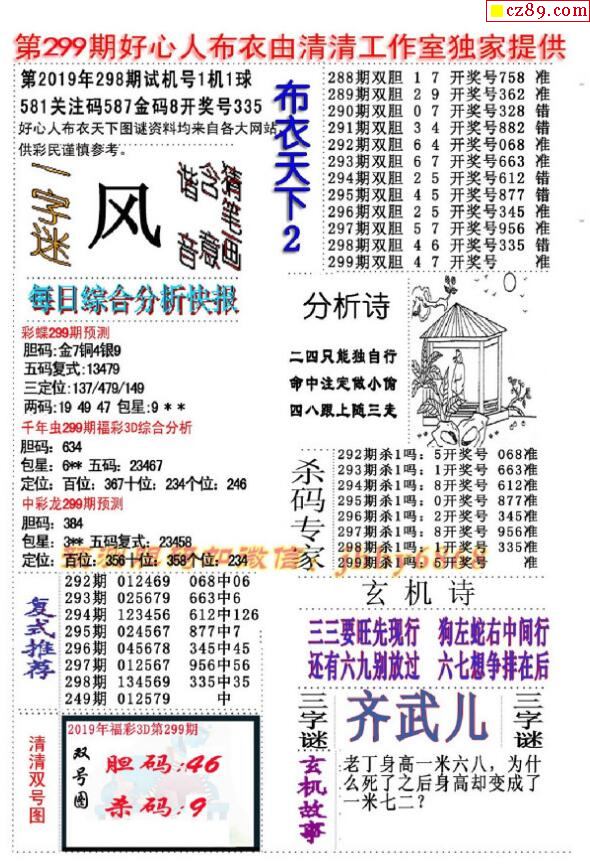 cz89.com
第299期好心人布衣由清清工作室独家提供
第2019年298期试机号1机1球
581关注码587金码8开奖号335
好心人布衣天下图谜资料均来自各大网站
供彩民谨慎参考。
一字迷
风
猜笔画
含意
谐音
每日综合分析快报
彩蝶299期预测
胆码:金7铜4银9
五码复式:13479
三定位:137/479/149
两码:19 49 47 包星:9 * *
千年虫299期福彩3D综合分析
胆码: 634
包星: 6** 五码: 23467
定位: 百位: 367十位: 234个位: 246
中彩龙299期预测
胆码: 384
包星: 3** 五码复式: 23458
定位: 百位: 356十位: 358个位: 234
复式推荐
292期 012469 068中06
293期 025679 663中6
294期 123456 612中126
295期 024567 877中7
296期 045678 345中45
297期 012567 956中56
298期 134569 335中35
249期 012579 中
清清双号图
2019年福彩3D第299期
双号图
胆码:46
杀码:9
布衣天下2
288期双胆 1 7 开奖号758 准
289期双胆 2 9 开奖号362 准
290期双胆 0 7 开奖号328 错
291期双胆 3 4 开奖号882 错
292期双胆 6 4 开奖号068 准
293期双胆 6 7 开奖号663 准
294期双胆 2 5 开奖号612 错
295期双胆 4 5 开奖号877 错
296期双胆 2 5 开奖号345 准
297期双胆 5 7 开奖号956 准
298期双胆 4 6 开奖号335 错
299期双胆 4 7 开奖号 准
分析诗
二四只能独自行
命中注定做小偷
四八跟上随三走
杀码专家
292期杀1吗: 5开奖号 068准
293期杀1吗: 1开奖号 663准
294期杀1吗: 8开奖号 612准
295期杀1吗: 0开奖号 877准
296期杀1吗: 2开奖号 345准
297期杀1吗: 8开奖号 956准
298期杀1吗: 1开奖号 335准
299期杀1吗: 5开奖号 准
玄机诗
三三要旺先现行 狗左蛇右中间行
还有六九别放过 六七想争排在后
三字谜
齐武儿
三字谜
玄机故事
老丁身高一米六八，为什
么死了之后身高却变成了
一米七二？